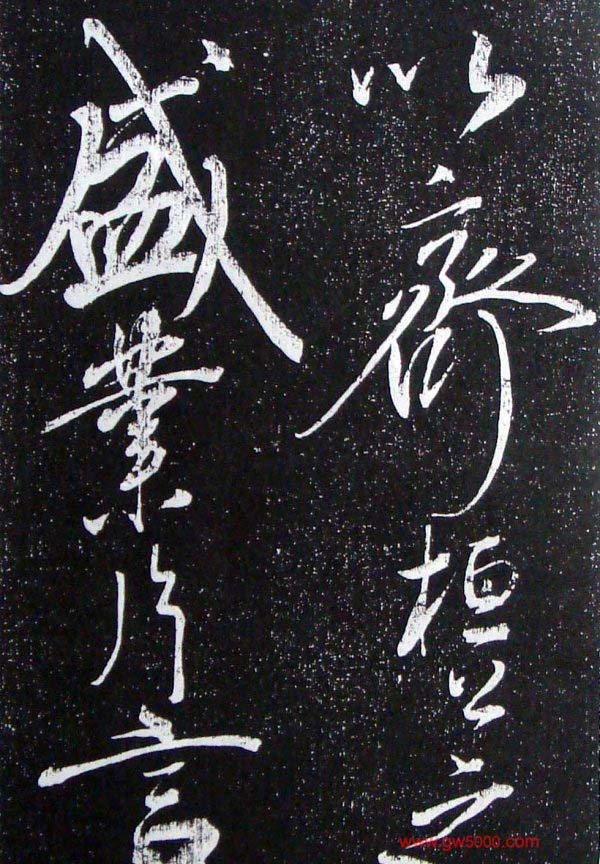 以齊桓公之
盛業片言
www.gw5000.com